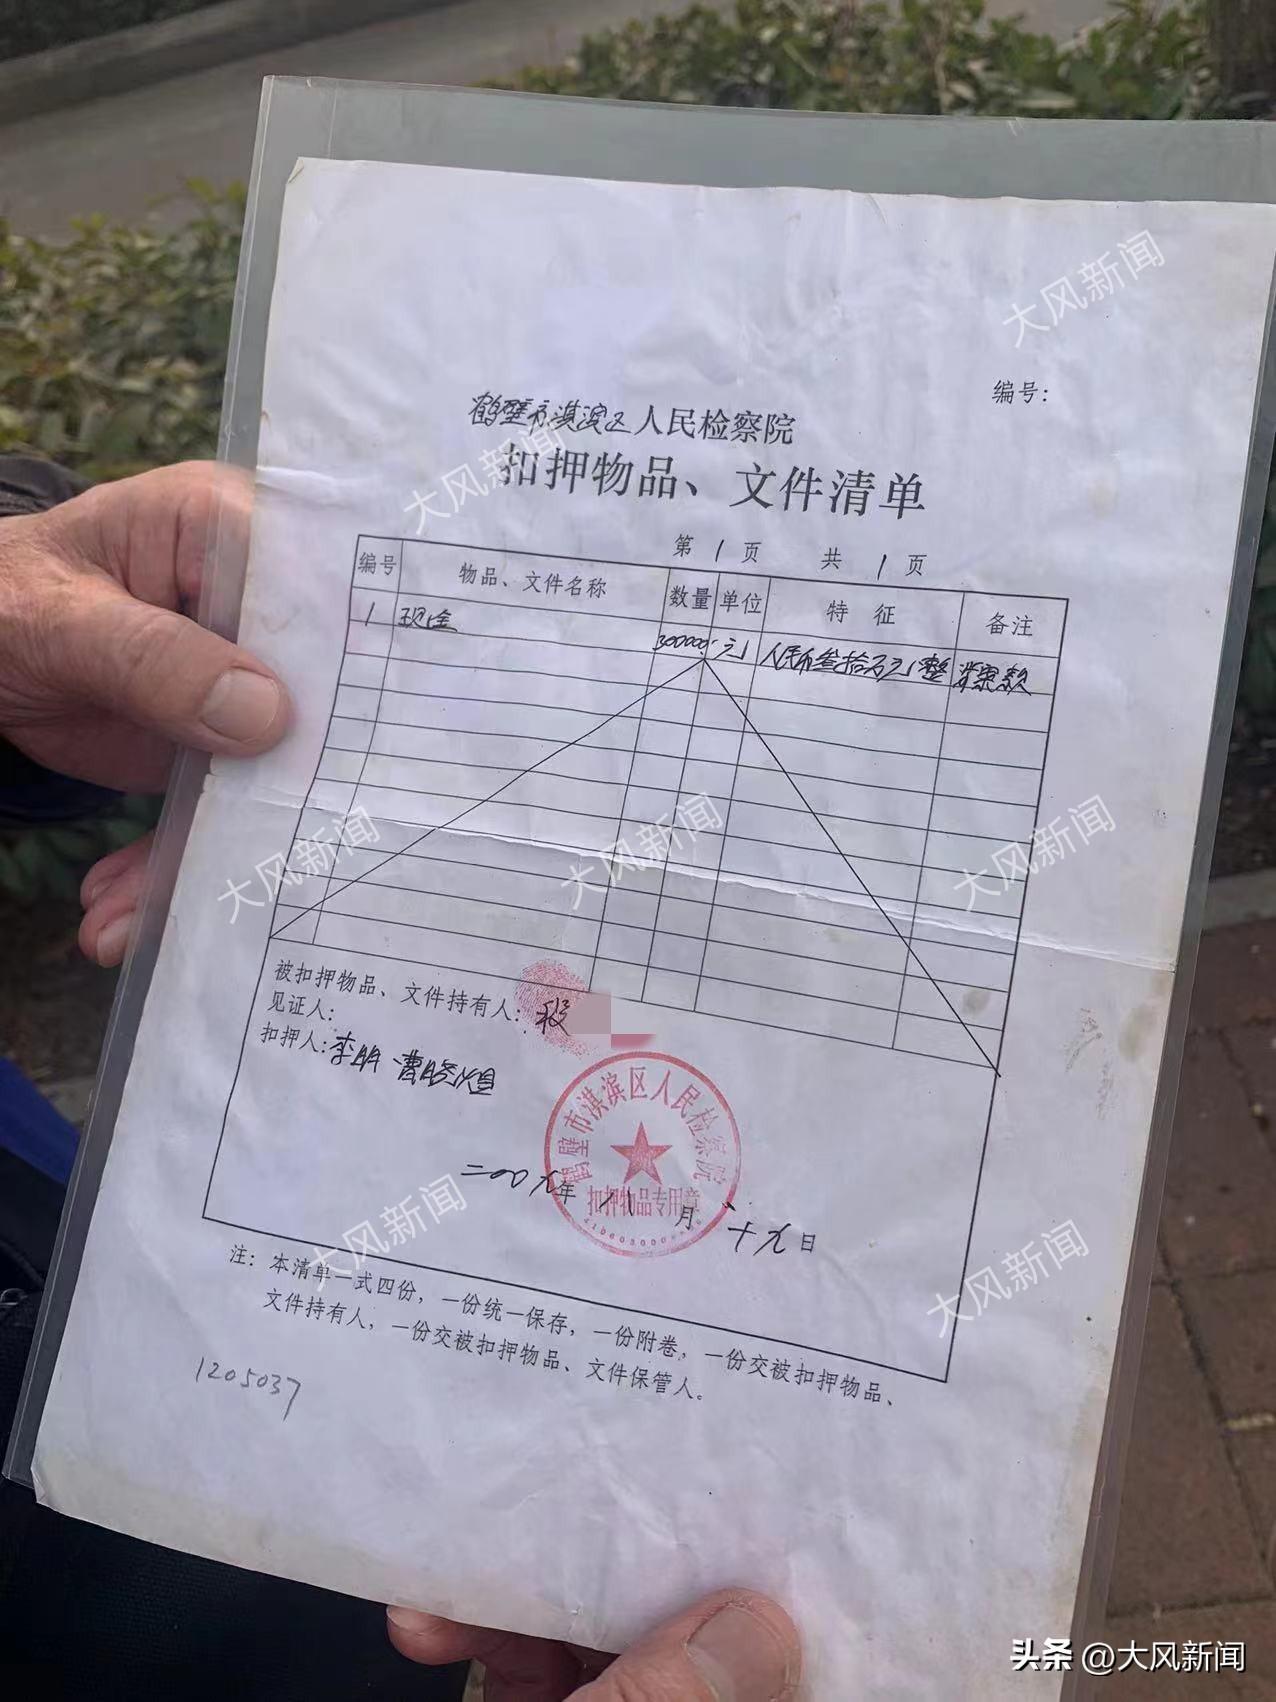 编号：
鹤壁市淇滨区人民检察院
扣押物品、文件清单
第 1 页 共 1 页
编号 物品、文件名称 数量 单位 特征 备注
1 现金 300000 元 人民币叁拾万元整 涉案款
被扣押物品、文件持有人：段
见证人：
扣押人：李明 曹
鹤壁市淇滨区人民检察院
扣押物品专用章
二〇〇九年 月 十九日
注：本清单一式四份，一份统一保存，一份附卷，一份交被扣押物品、
文件持有人，一份交被扣押物品、文件保管人。
1205037
大风新闻
大风新闻
大风新闻
大风新闻
大风新闻
大风新闻
大风新闻
头条 @大风新闻